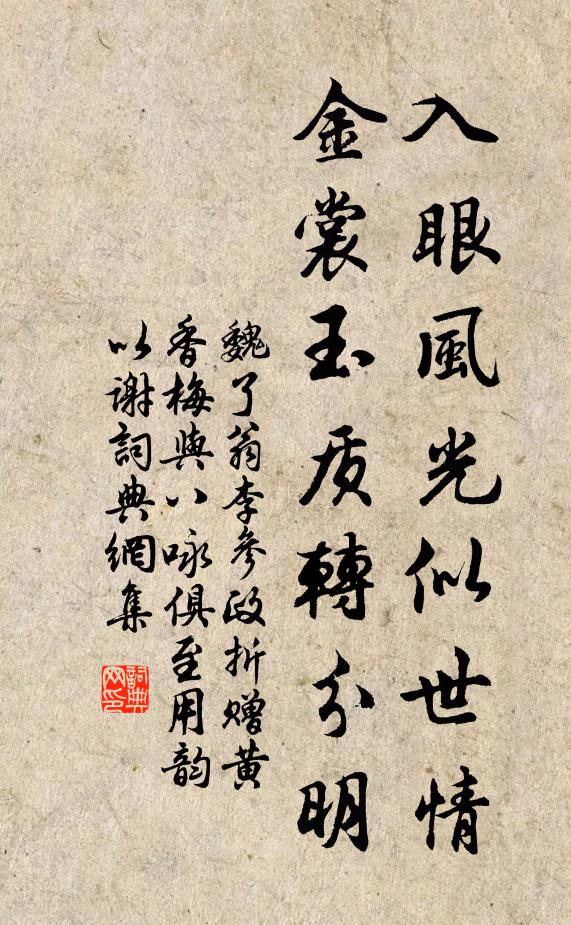 入眼風光似世情
金裳玉质轉分明
魏了翁李參政折赠黄
香梅與八咏俱至用韵
以谢詞典網集
詞典
网印